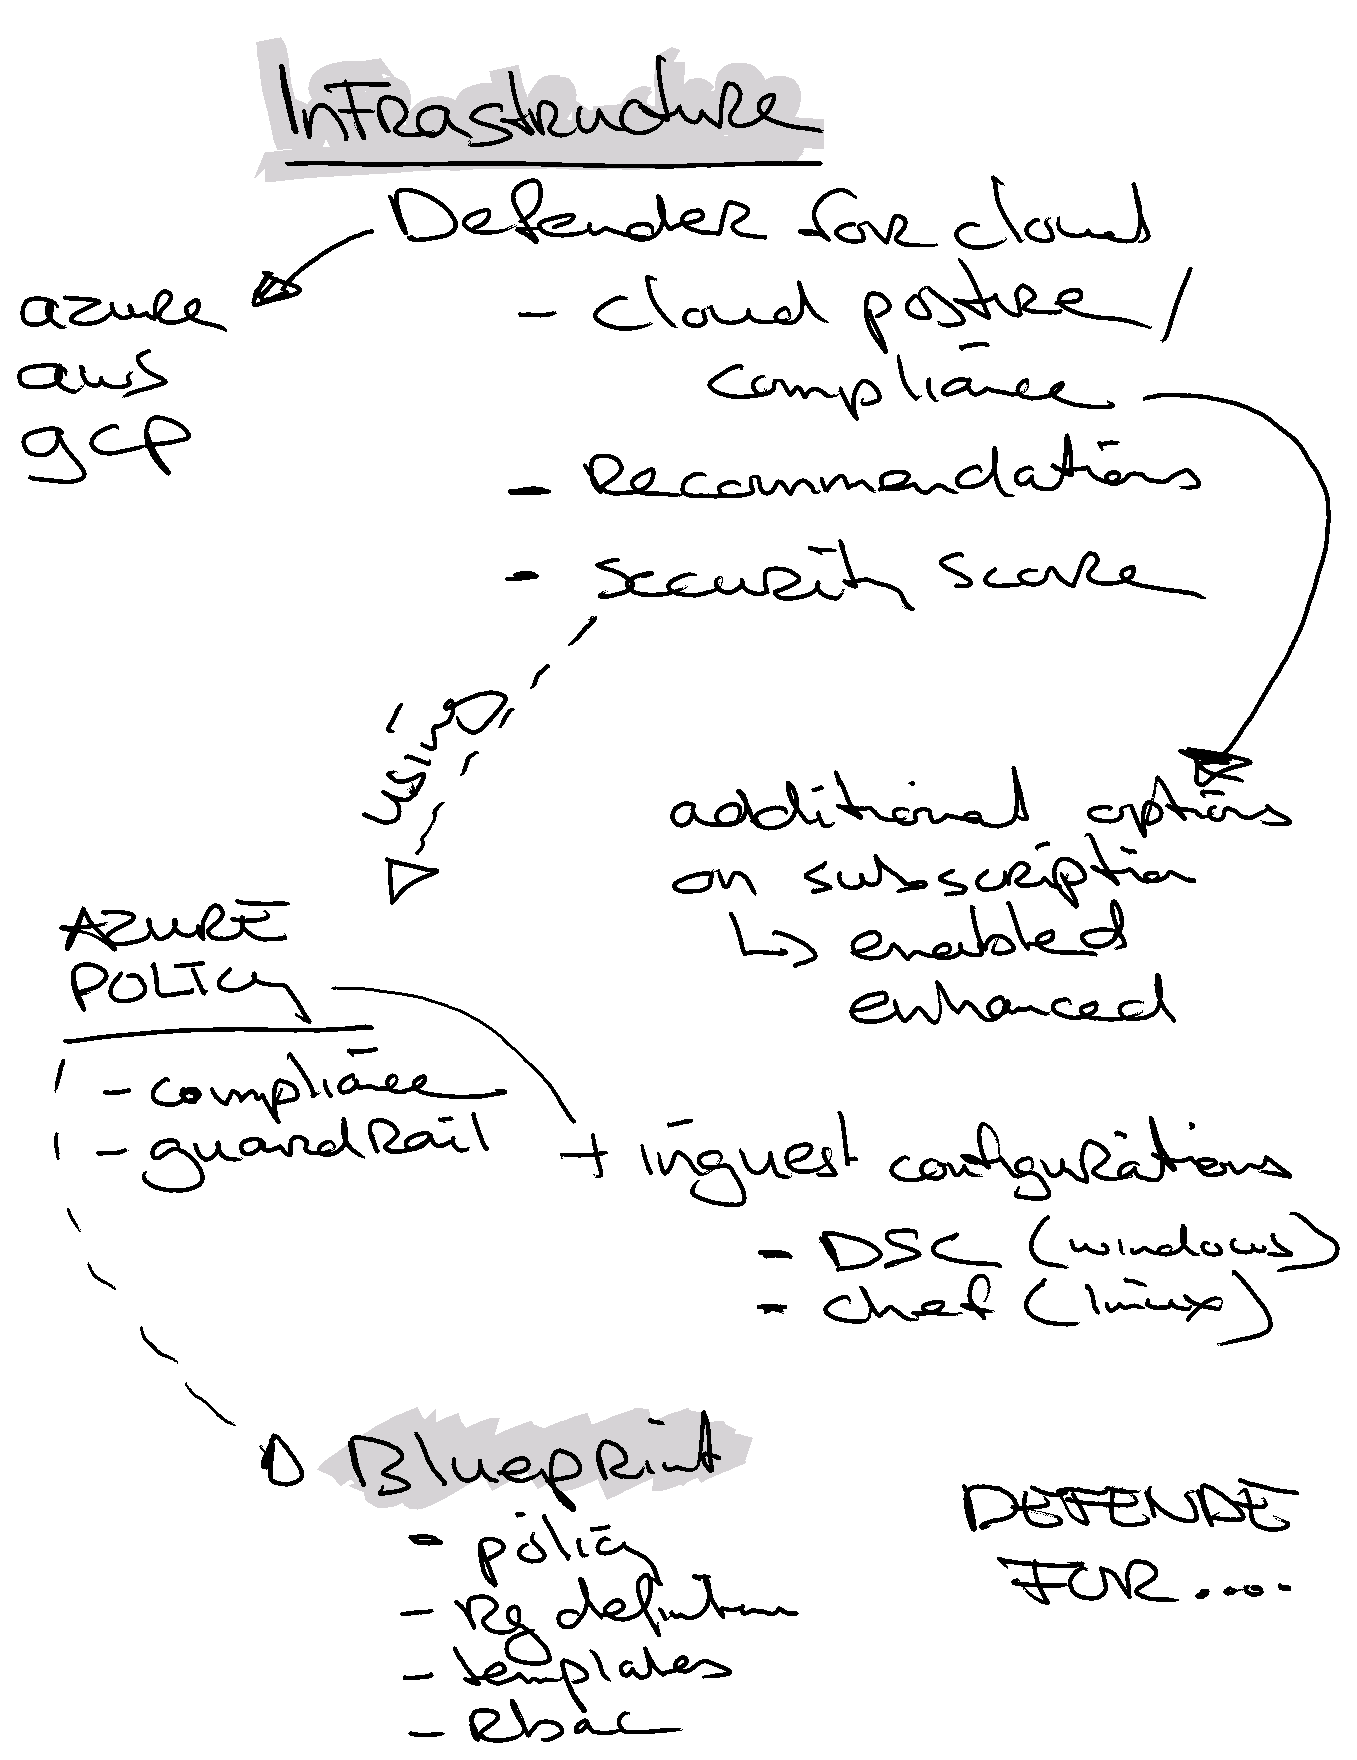 Infrastructure
Defender for cloud
azure
aws
gcp
- cloud postire /
compliance
- Recommendations
- Security Score
using
additional options
on subscription
↳ enabled
enhanced
AZURE
POLICY
- compliance
- guardRail
+ inguest configurations
- DSC (windows)
- chef (linux)
Blueprint
- policy
- Rg definition
- templates
- Rbac
DEFENDE
FOR ....